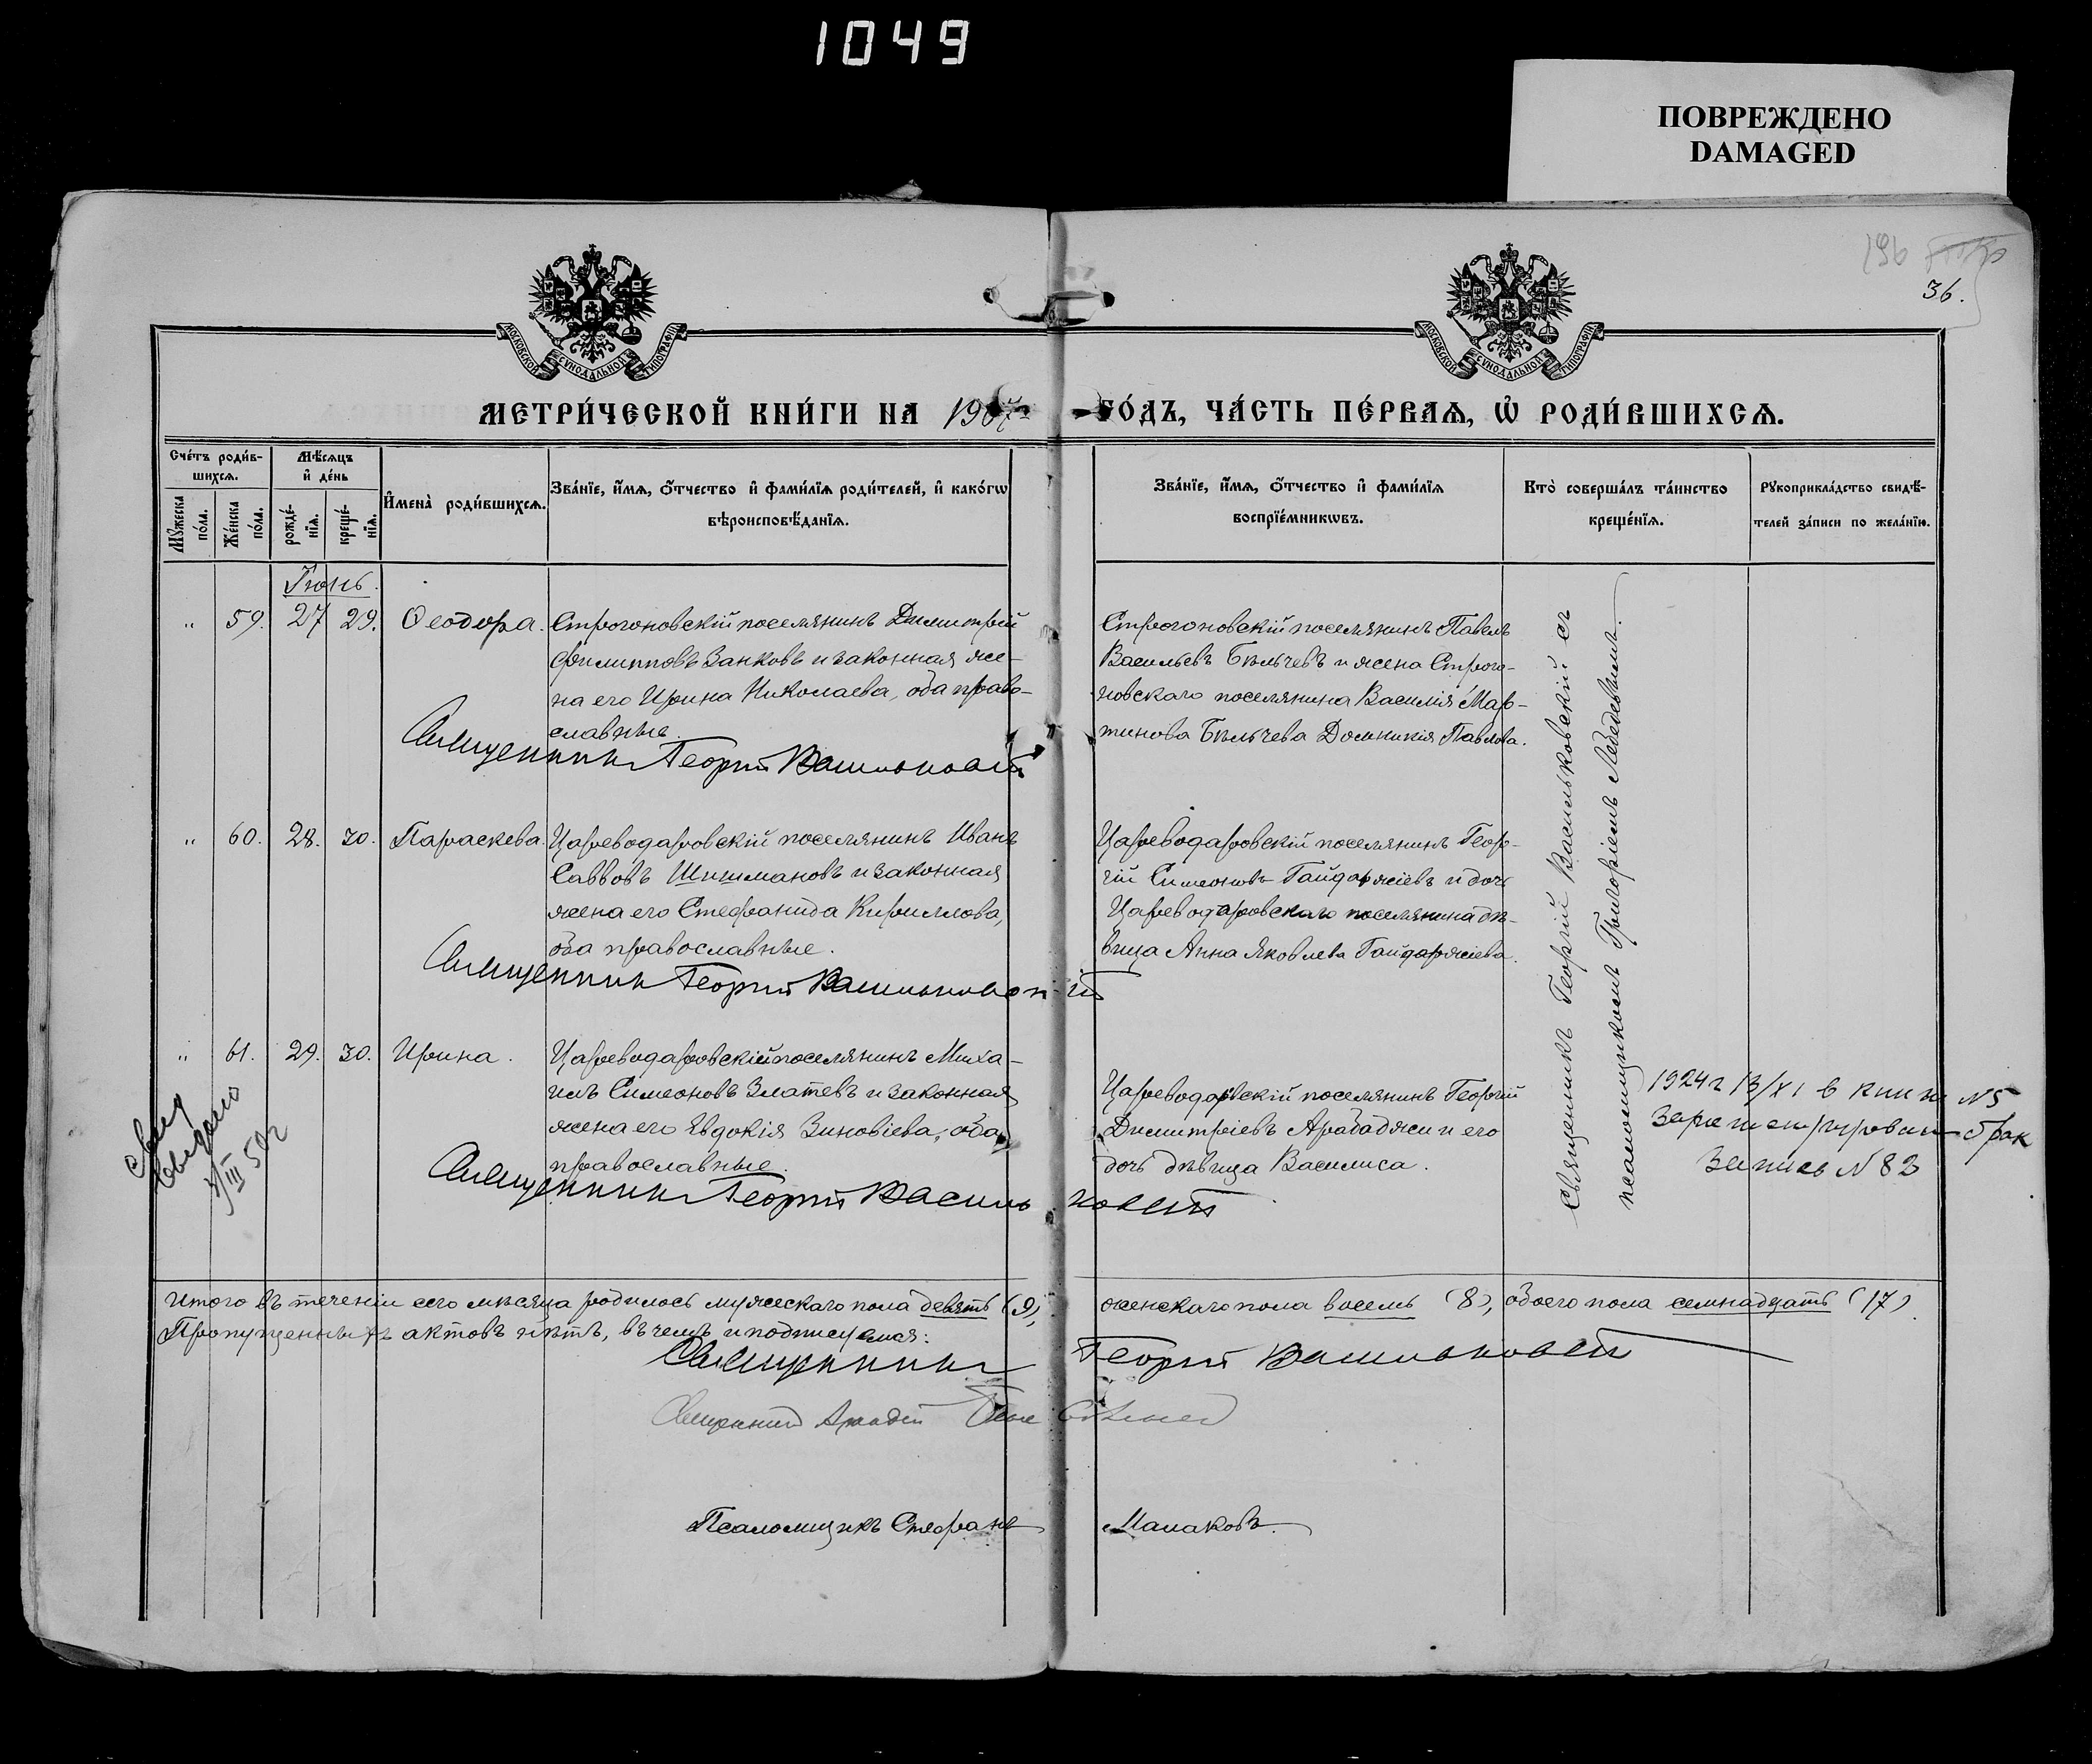 1049
ПОВРЕЖДЕНО
DAMAGED
196
36.
МОСКОВСКОЙ СѴНОДАЛЬНОЙ ТИПОГРАФІИ
МОСКОВСКОЙ СѴНОДАЛЬНОЙ ТИПОГРАФІИ
МЕТРИ́ЧЕСКОЙ КНИ́ГИ НА 1907
ГО́ДЪ, ЧА́СТЬ ПЕ́РВАѦ, Ѡ҆ РОДИ́ВШИХСѦ.
Сче́тъ роди́в-
шихсѧ.
Мѣ́сѧцъ
и҆ де́нь
Мꙋ́жеска по́ла.
Же́нска по́ла.
рожде́-нїѧ.
креще́-нїѧ.
И҆мена̀ роди́вшихсѧ.
Зва́нїе, и҆́мѧ, о҆́тчество и҆ фами́лїѧ роди́телей, и҆ како́гѡ
вѣроисповѣ́данїѧ.
Зва́нїе, и҆́мѧ, о҆́тчество и҆ фами́лїѧ
воспрїе́мникѡвъ.
Кто̀ соверша́лъ та́инство
креще́нїѧ.
Рꙋкоприкла́дство свидѣ́-
телей за́писи по жела́нїю.
Іюнь.
" 59. 27 29. Ѳеодора. Строгоновскій поселянинъ Димитрій
Филипповъ Занковъ и законная же-
на его Ирина Николаева, оба право-
славные.
Священникъ Георгій Васильковскій
Строгоновскій поселянинъ Павелъ
Васильевъ Бѣльчевъ и жена Строго-
новскаго поселянина Василія Мар-
тинова Бѣльчева Домникія Павлова.
" 60. 28. 30. Параскева. Цареводаровскій поселянинъ Иванъ
Саввовъ Шишмановъ и законная
жена его Стефанида Кириллова,
оба православные.
Священникъ Георгій Васильковскій
Цареводаровскій поселянинъ Геор-
гій Симеоновъ Гайдаржіевъ и дочь
Цареводаровскаго поселянина дѣ-
вица Анна Яковлева Гайдаржіева.
" 61. 29. 30. Ирина. Цареводаровскій поселянинъ Миха-
илъ Симеоновъ Златевъ и законная
жена его Евдокія Зиновіева, оба
православные.
Священникъ Георгій Васильковскій
Цареводаровскій поселянинъ Георгій
Димитріевъ Арабаджи и его
дочь дѣвица Василиса.
Священникъ Георгій Васильковскій съ
псаломщикомъ Григоріемъ Лебедевымъ.
1924 г 13/XI в книге N5
зарегистрирован брак
запись N 82
III 50 г
Итого въ теченіи сего мѣсяца родилось мужескаго пола девять (9),
женскаго пола восемь (8), обоего пола семнадцать (17).
Пропущенныхъ актовъ нѣтъ, въ чемъ и подписуемся:
Священникъ Георгій Васильковскій
Священник Аркадій
Псаломщикъ Стефанъ Малаковъ.